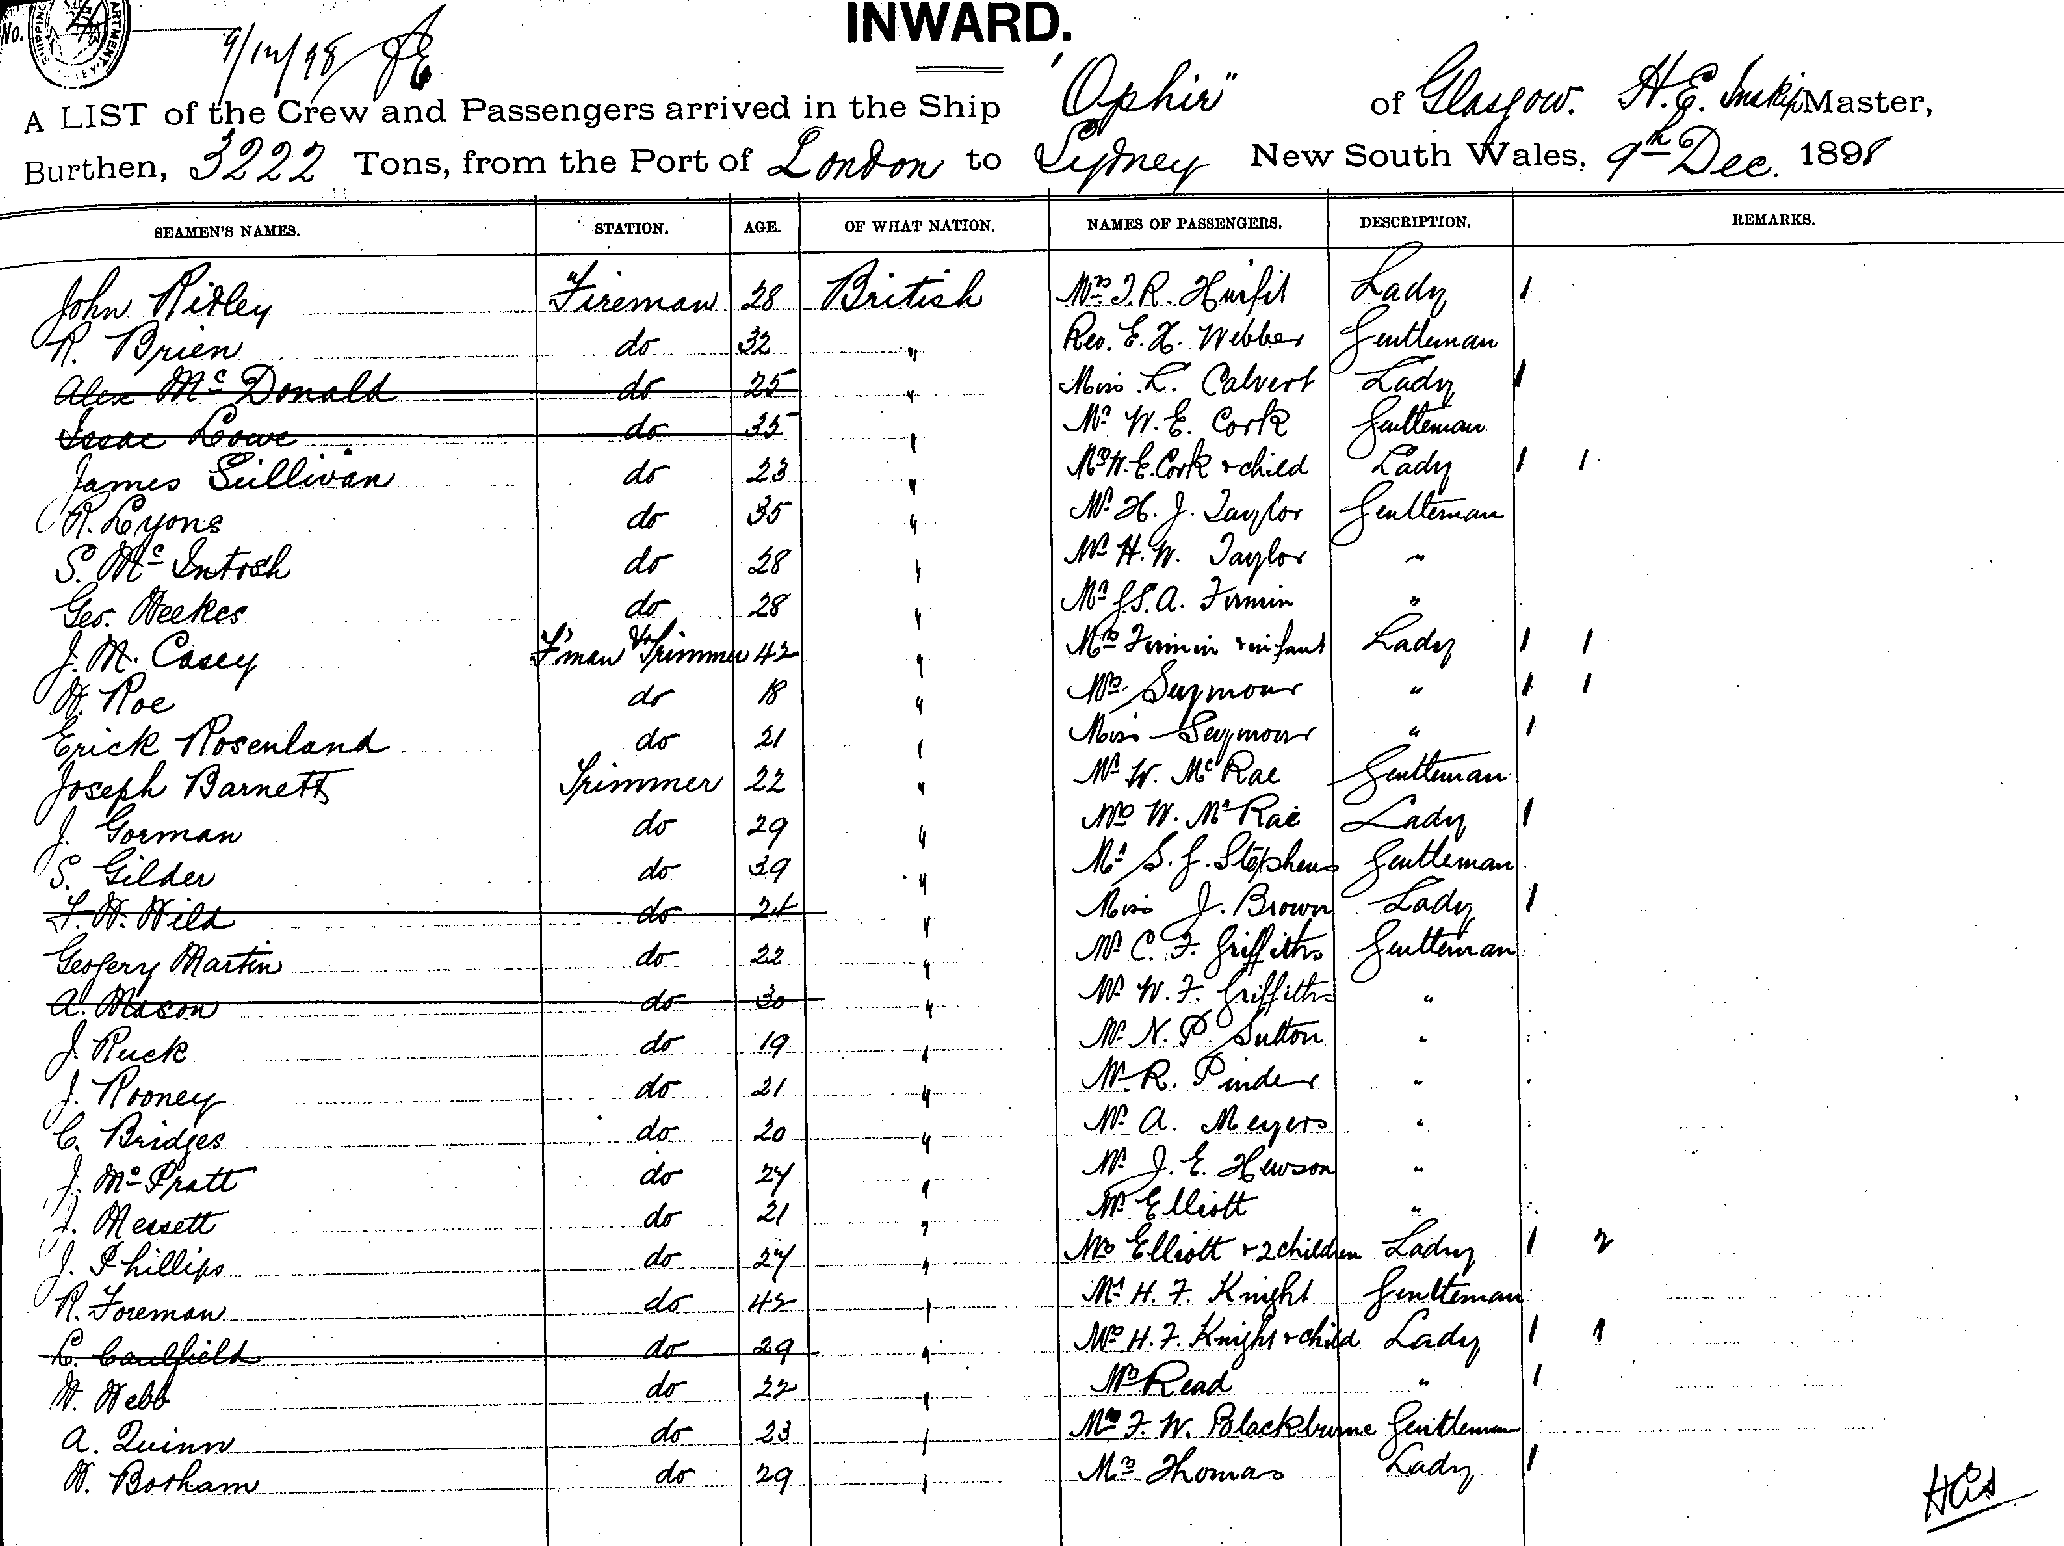 No.
9/12/98
INWARD.
A LIST of the Crew and Passengers arrived in the Ship "Ophir" of Glasgow. H.E. Inskip Master,
Burthen, 3222 Tons, from the Port of London to Sydney New South Wales, 9th Dec. 1898
SEAMEN'S NAMES. STATION. AGE. OF WHAT NATION. NAMES OF PASSENGERS. DESCRIPTION. REMARKS.
John Ridley Fireman 28 British Mrs T.R. Lady 1
R. Brien do 32 " Rev. E. H. Webber Gentleman
Alex McDonald do 25 " Miss L. Calvert Lady 1
Isaac Lowe do 35 " Mr W. E. Cork Gentleman
James Sullivan do 23 " Mrs W.E. Cork & child Lady 1 1
R. Lyons do 35 " Mr H. J. Taylor Gentleman
S. McIntosh do 28 " Mr H. W. Taylor "
Geo. Weekes do 28 " Mr J.S.A. Firmin "
J. M. Casey F'man & Trimmer 42 " Mrs Firmin & infant Lady 1 1
W. Roe do 18 " Mrs Seymour " 1 1
Erick Rosenland do 21 " Miss Seymour " 1
Joseph Barnett Trimmer 22 " Mr W. McRae Gentleman
J. Gorman do 29 " Mrs W. McRae Lady 1
S. Gilder do 39 " Mr S. J. Stephens Gentleman
F. W. Wild do 24 " Miss J. Brown Lady 1
Geofery Martin do 22 " Mr C. F. Griffiths Gentleman
A. Mason do 30 " Mr W. F. Griffiths "
J. Ruck do 19 " Mr N. P. Sutton "
J. Rooney do 21 " Mr R. Pinder "
C. Bridges do 20 " Mr A. Meyers "
J. McPratt do 27 " Mr J. E. Hewson "
J. Messett do 21 " Mr Elliott "
J. Phillips do 27 " Mrs Elliott & 2 children Lady 1 2
R. Foreman do 42 " Mr H. F. Knight Gentleman
L. Caulfield do 29 " Mrs H. F. Knight & child Lady 1 1
W. Webb do 22 " Mrs Read " 1
A. Quinn do 23 " F. W. Blackburne Gentleman
W. Borham do 29 " Mrs Thomas Lady 1